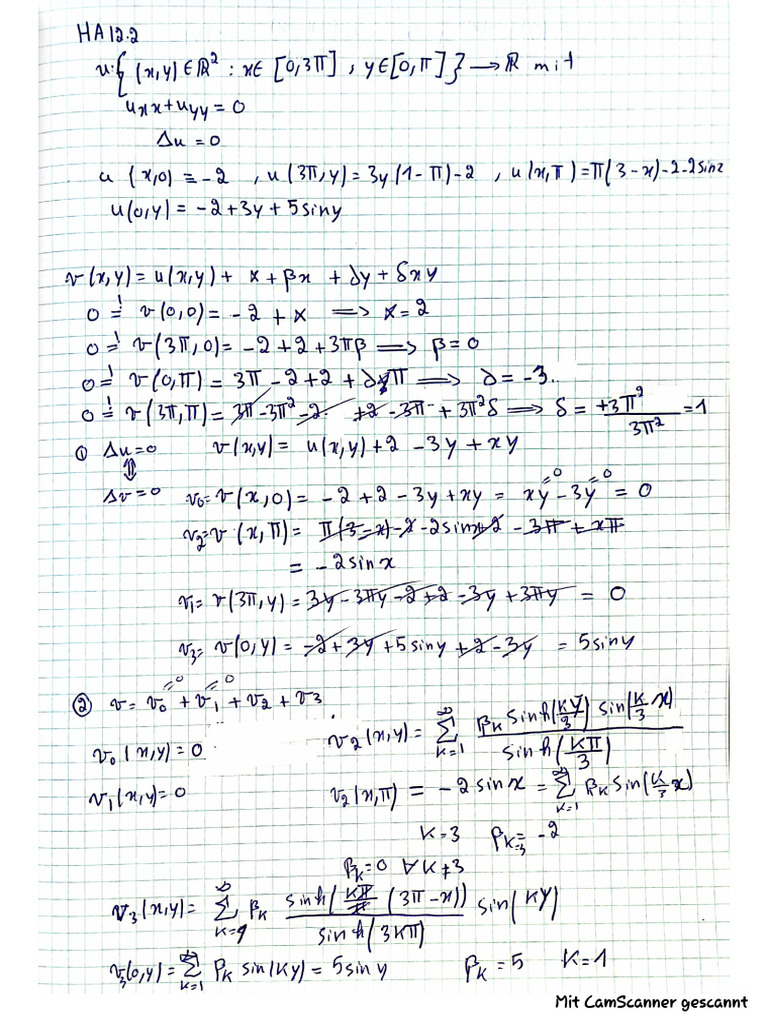 HA 12.2
u: { (x,y) ∈ ℝ² : x ∈ [0,3π] , y ∈ [0,π] } → ℝ mit
u_xx + u_yy = 0
Δu = 0
u (x,0) = -2 , u(3π,y) = 3y(1-π)-2 , u(x,π) = π(3-x)-2-2sinx
u(0,y) = -2+3y+5siny
v(x,y) = u(x,y) + α + βx + γy + δxy
0 =! v(0,0) = -2 + α ⟹ α = 2
0 =! v(3π,0) = -2+2+3πβ ⟹ β = 0
0 =! v(0,π) = 3π-2+2+γπ ⟹ γ = -3.
0 =! v(3π,π) = 3π-3π²-2 +2-3π + 3π²δ ⟹ δ = +3π²/3π² = 1
① Δu=0 v(x,y) = u(x,y)+2 -3y + xy
⇕
Δv=0 v₀= v(x,0) = -2+2-3y+xy = xy -3y = 0
v₂= v (x,π) = π(3-x)-2-2sinx+2 -3π + xπ
= -2sinx
v₁= v(3π,y) = 3y-3πy-2+2-3y+3πy = 0
v₃= v(0,y) = -2+3y+5siny+2-3y = 5siny
② v = v₀ + v₁ + v₂ + v₃
v₀ (x,y) = 0 v₂(x,y) = ∑_{k=1}^∞ β_k sinh(ky/3) sin(k/3 x) / sinh(kπ/3)
v₁(x,y) = 0 v₂(x,π) = -2 sinx = ∑_{k=1}^∞ β_k sin(k/3 x)
k=3 β_{k=3} = -2
β_k=0 ∀k≠3
v₃(x,y) = ∑_{k=1}^∞ β_k sinh(kπ/π (3π-x)) / sinh(3kπ) sin(ky)
v₃(0,y) = ∑_{k=1}^∞ β_k sin(ky) = 5siny β_k = 5 k=1
Mit CamScanner gescannt